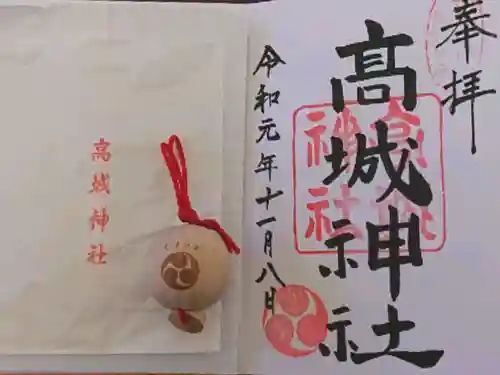 奉拝
高城神社
高城神社
令和元年十一月八日
高城神社
くまがや